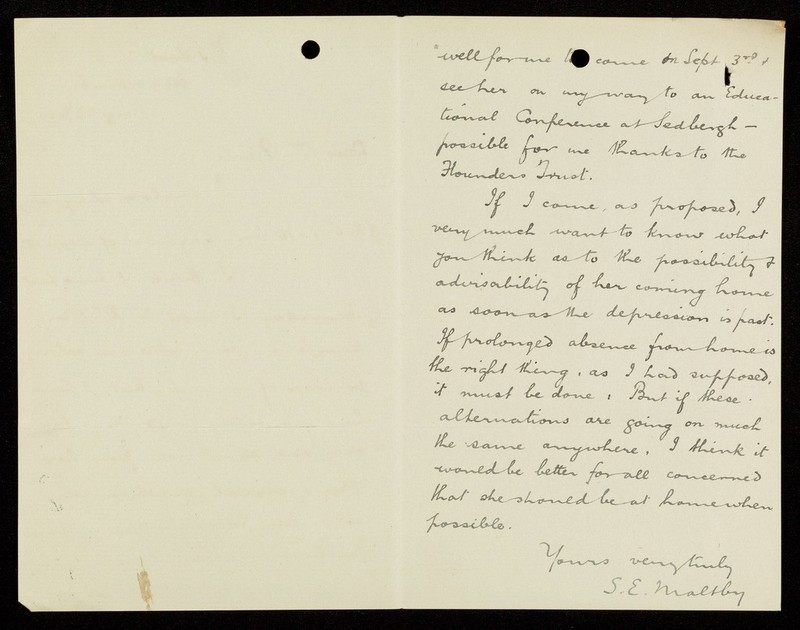 well for me to come on Sept 3rd &
see her on my way to an Educa-
tional Conference at Sedbergh —
possible for me thanks to the
Flounders Trust.
If I come, as proposed, I
very much want to know what
you think as to the possibility &
advisability of her coming home
as soon as the depression is past.
If prolonged absence from home is
the right thing, as I had supposed,
it must be done; But if these
alternations are going on much
the same anywhere, I think it
would be better for all concerned
that she should be at home when
possible.
Yours very truly
S. E. Maltby